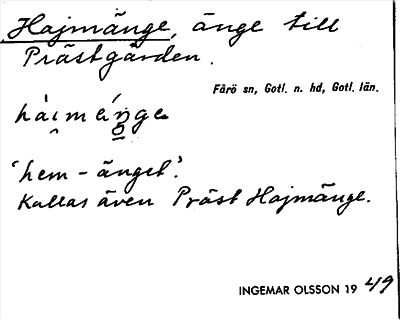 Hajmänge, änge till
Prästgården.
Fårö sn, Gotl. n. hd, Gotl. län.
'hem-änget'.
Kallas även Präst Hajmänge.
INGEMAR OLSSON 1949